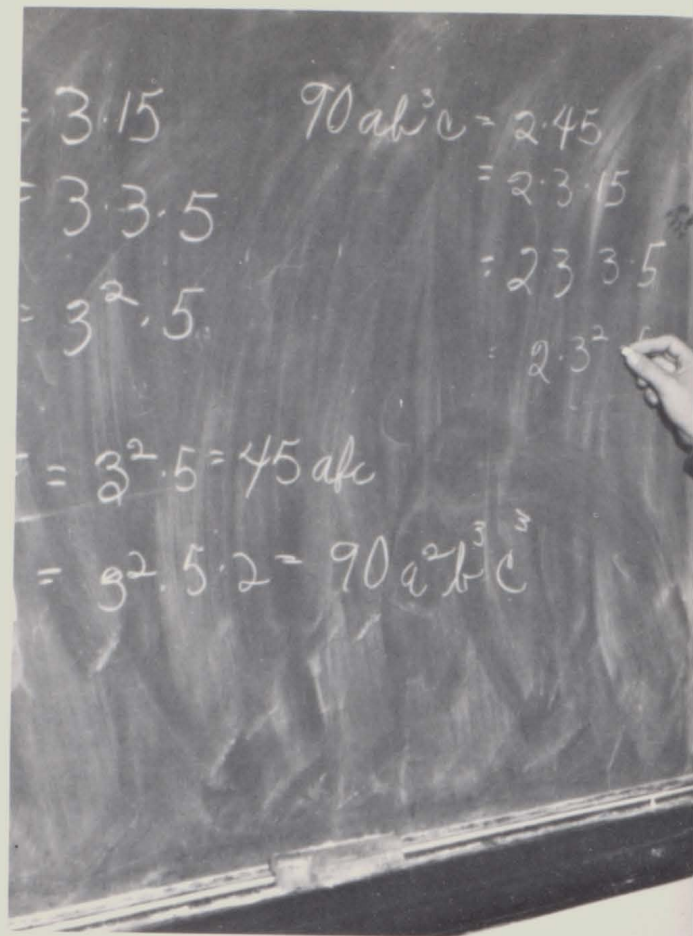 = 3·15
= 3·3·5
= 3²·5.
90ab³c = 2·45
= 2·3·15
= 2 3 3·5
= 2·3²
= 3²·5 = 45abc
= 3²·5·2 = 90a²b³c³